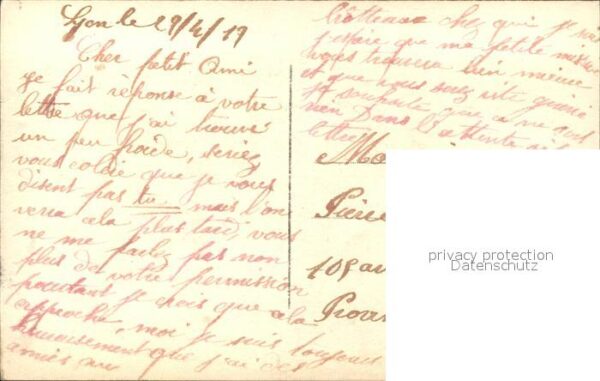 Lyon le 29/4/19
Cher petit Ami
je fait réponse à votre
lettre que j'ai trouvé
un peu froide, seriez
vous colère que je vous
disent pas tu mais l'on
verra cela plus tard, vous
ne me parlez pas non
plus de votre permission
pourtant je crois que cela
approche, moi je suis toujours
heureusement que j'ai des
amies au
chez qui je vais
j'espère que ma petite missive
vous trouvera bien mieux
et que vous serez vite guéri
je souhaite que ce ne soit
rien Dans l'attente
lettre
Pierre
108 av
privacy protection
Datenschutz